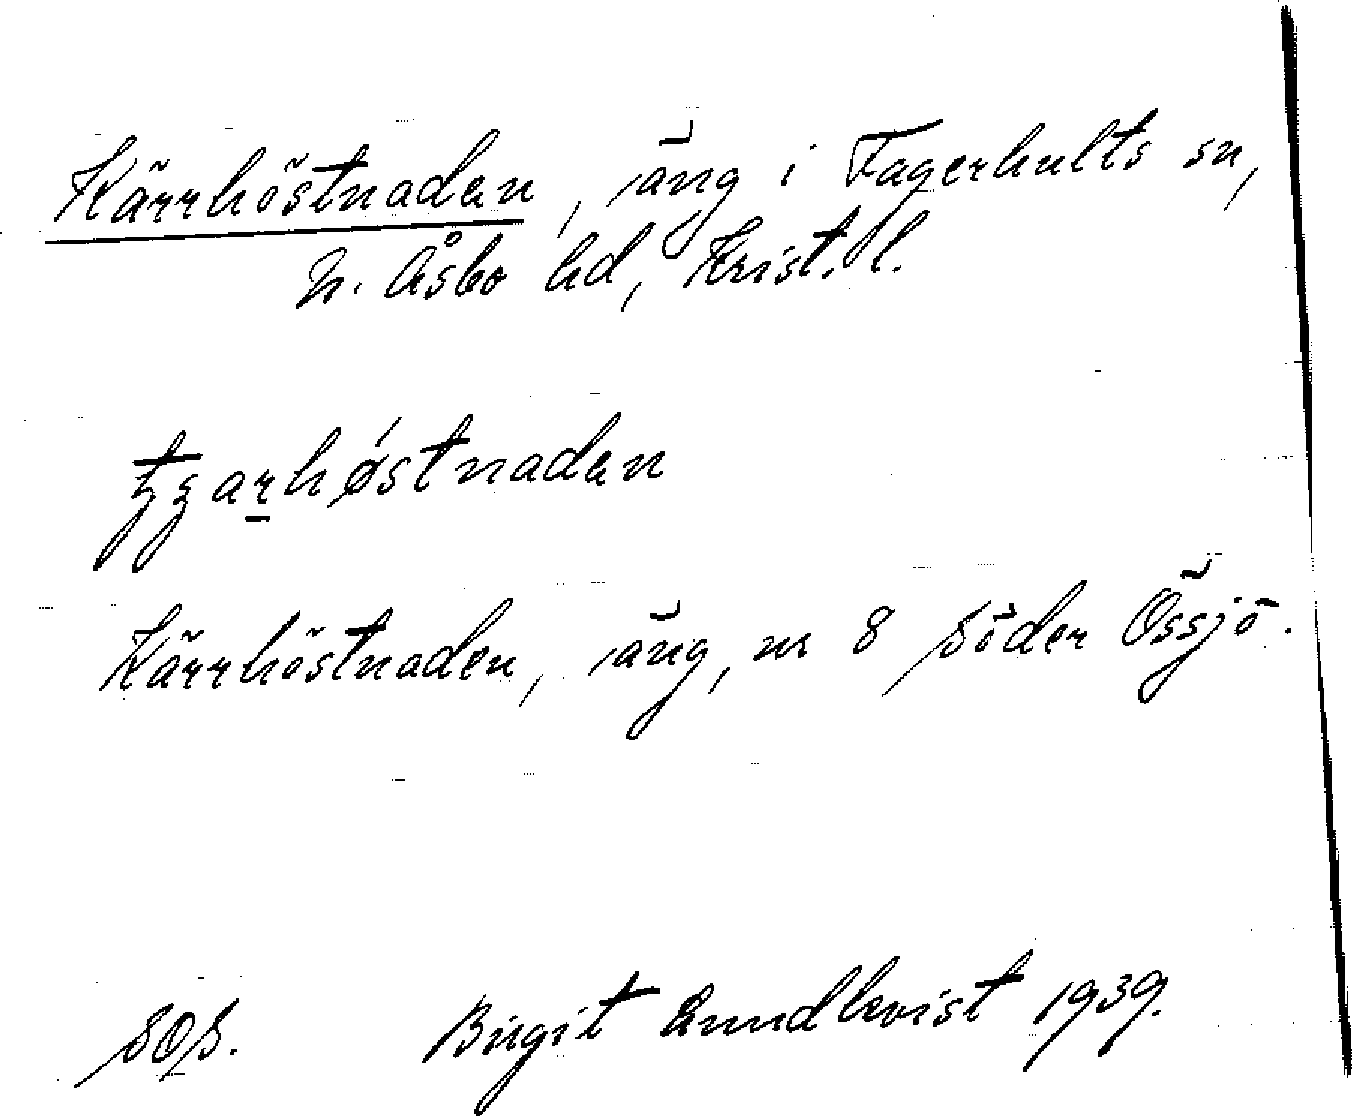 Kärrhöstnaden, äng i Fagerhults sn,
N. Åsbo hd, Krist. l.
arhøstnaden
Kärrhöstnaden, äng, nr 8 Söder Össjö.
SOS. Birgit 1939.